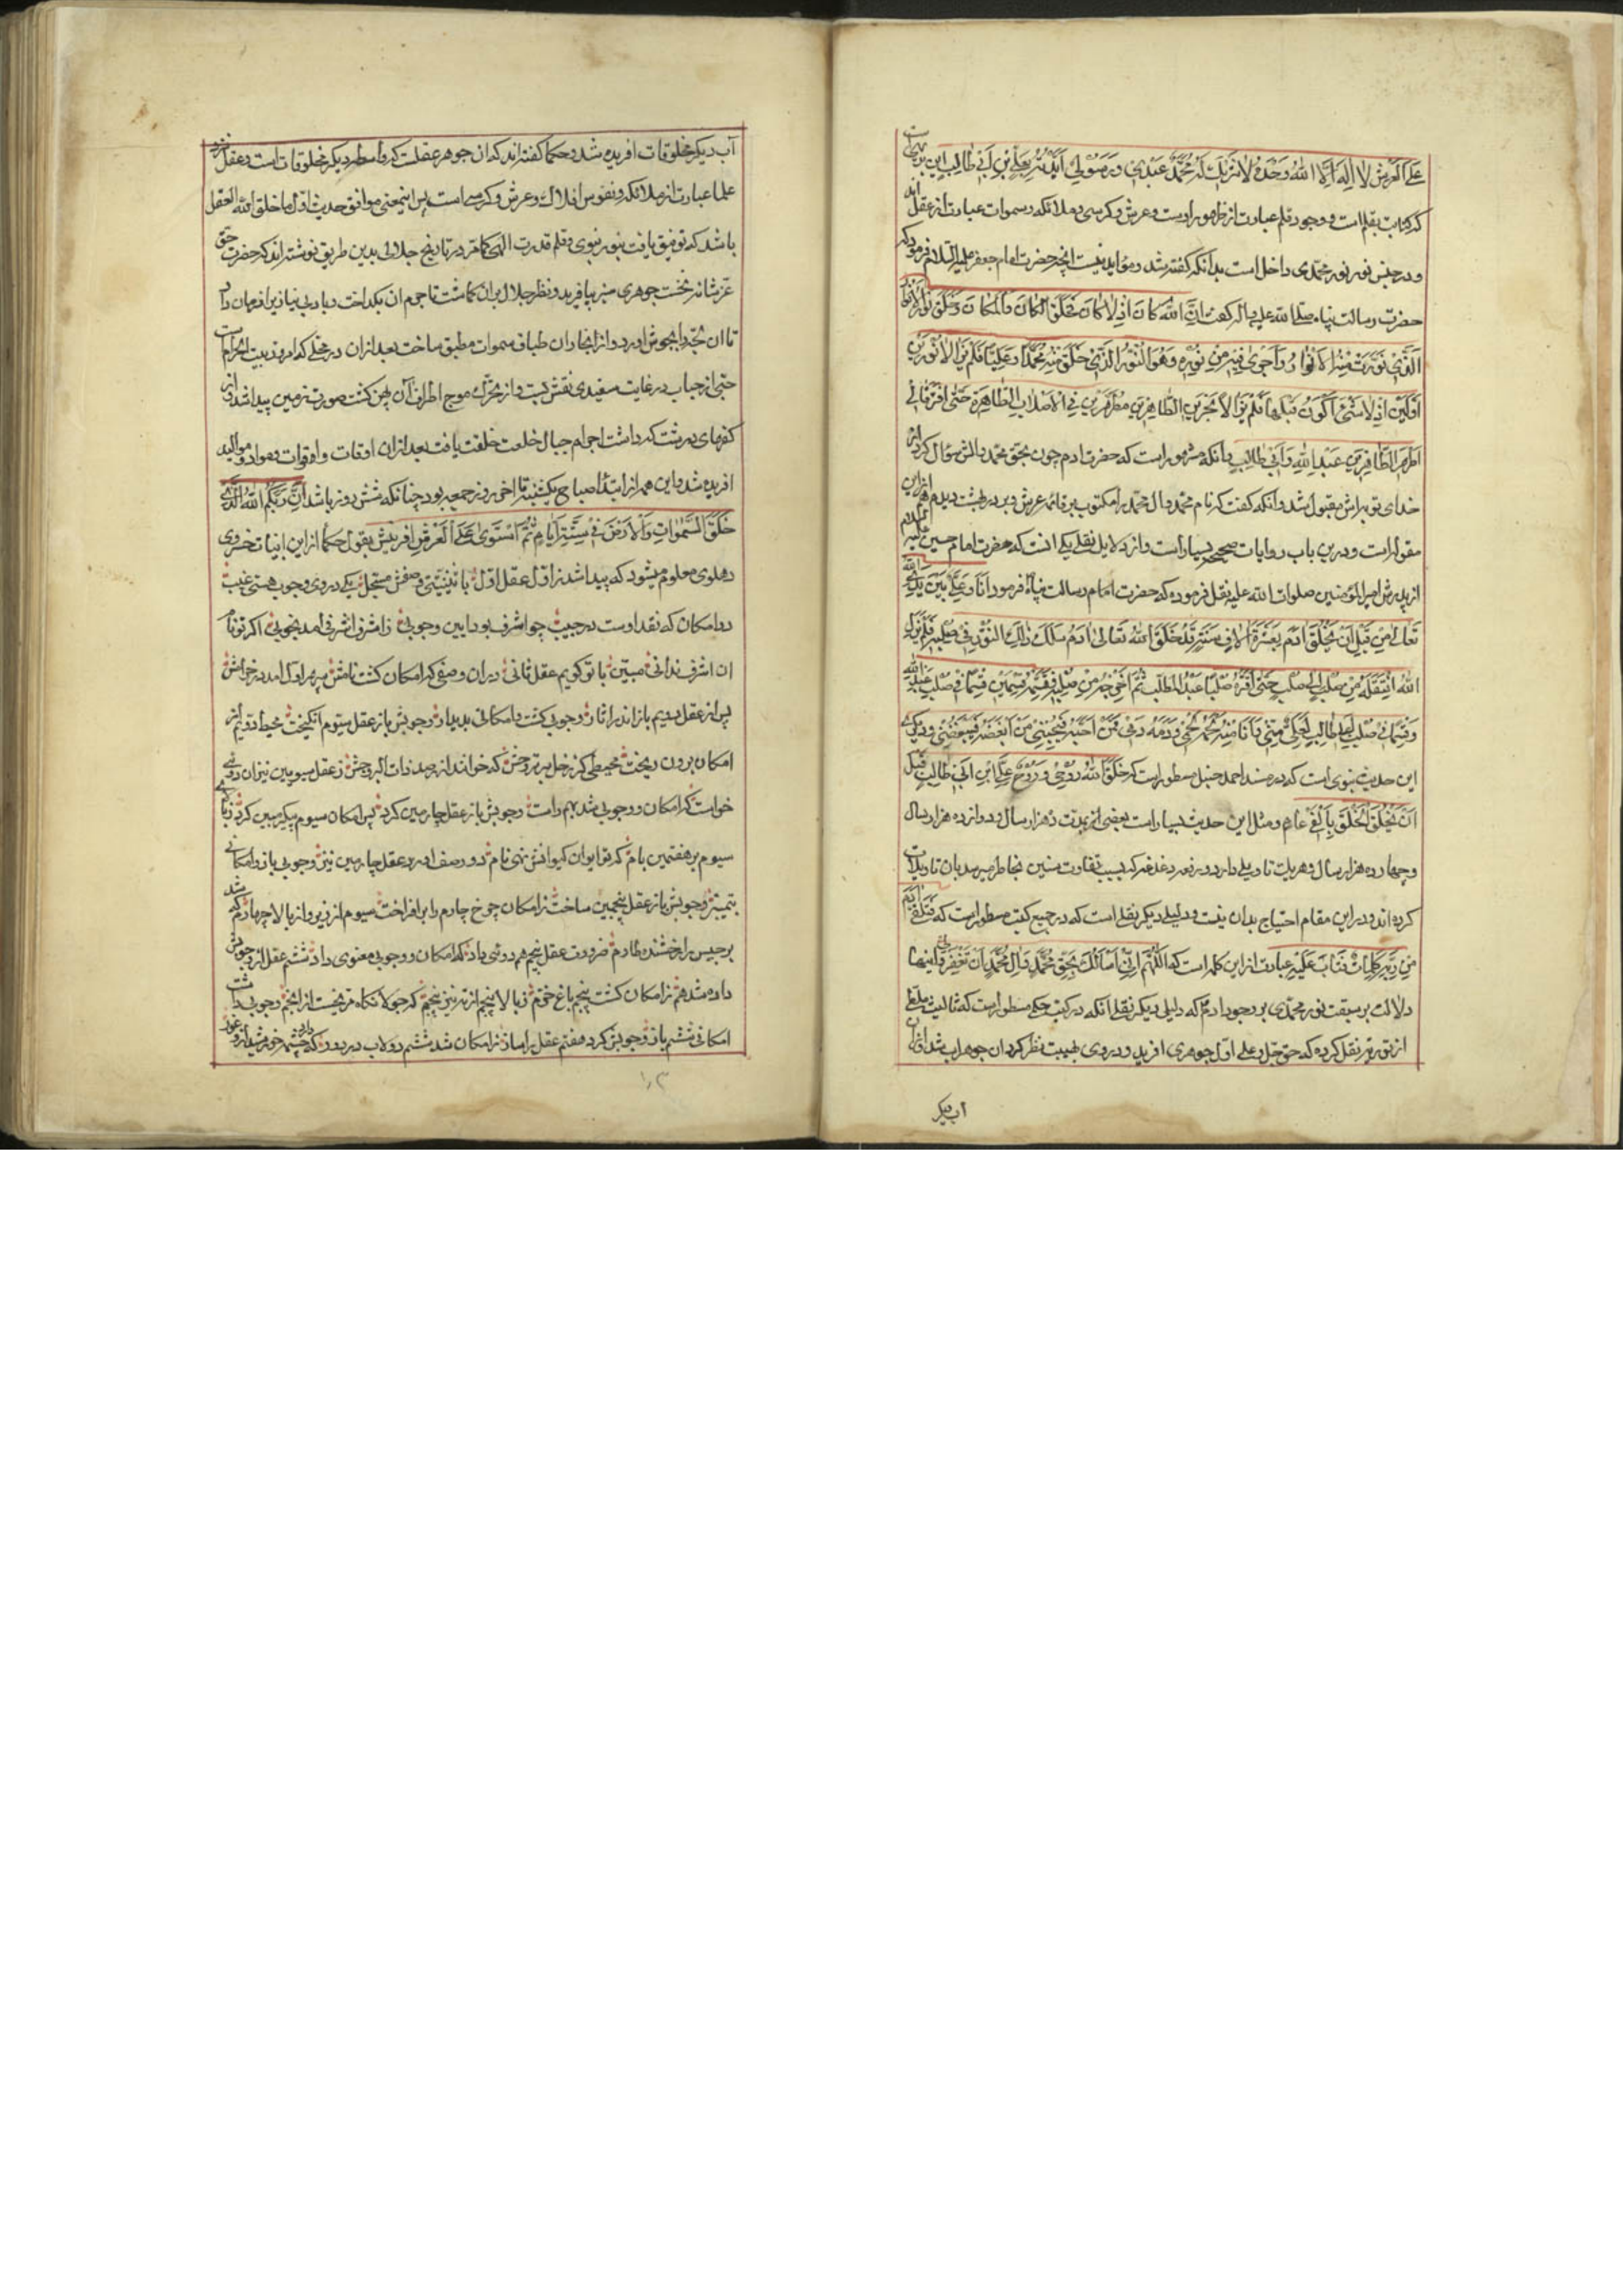 علی العرش لا اله الا الله وحده لا شریک له محمد عبدی و رسولی ایدته بعلی بن ابی طالب این
که کتاب بقلم است و وجود قلم عبارت از ظاهور اوست و عرش و کرسی و ملائکه و سموات عبارت از عقل
و در جنس نور نور محمدی داخل است بدانکه گفته شد و مؤاید نیست انچه حضرت امام جعفر علیه السلام فرموده که
حضرت رسالت پناه صلی الله علیه و اله گفت ان الله کان اذ لا کان فخلق الکان والمکان و خلق نور الانوار
الذی نورت منه الانوار و اجری فیه من نوره و هو النور الذی خلق منه محمدا و علیا فلم یزالا نورین
اولین اذ لا شئ کون قبلهما فلم یزالا یجزین الطاهرین مطهرین فی الاصلاب الطاهرة حتی افترقا فی
اطهر الطاهرین عبد الله و ابی طالب و آنکه مشهور است که حضرت ادم چون بحق محمد و الش سؤال کرد از
خدای توبه اش مقبول شد و آنکه گفت که نام محمد و ال محمد را مکتوب بر قائمه عرش و بر در بهشت دیدم
مقوله است و درین باب روایات صحیحه بسیار است و از دلایل نقلی یکی انست که حضرت امام حسین علیه السلام
از پدرش امیر المؤمنین صلوات الله علیه نقل فرموده که حضرت امام رسالت پناه فرمود انا و علی بین یدی الله
تعالی من قبل ان یخلق ادم بعشرة الاف سنة فلما خلق الله تعالی ادم سلک ذلک النور فی صلبه فلم یزل
الله انتقله من صلب الی صلب حتی اقره صلب عبد المطلب ثم اخرجه من صلبه فقسمه قسمین قسما فی صلب عبد الله
و قسما فی صلب ابی طالب فعلی منی و انا منه لحمه لحمی و دمه دمی فمن احبه فیحبنی من ابغضه فیبغضنی و دیگر
این حدیث نبوی است که در مسند احمد حنبل مسطور است که خلق الله روحی و روح علی ابن ابی طالب قبل
ان یخلق الخلق بالفی عام و مثل این حدیث بسیار است بعضی از مدت دهزار سال و دوازده هزار سال
و چهارده هزار سال و هریک تاویلی دارد و دغدغه که بسبب تفاوت سنین بخاطر میرسد بان تاویلات
کرده اند و در این مقام احتیاج بدان نیست و دلیلی دیگر نقلی است که در جمیع کتب مسطور است که فتلقی ادم
من ربه کلمات فتاب علیه عبارت از این کلمه است که اللهم انی اسالک بحق محمد و ال محمد ان تغفر لی و اینها
دلالت بر سبقت نور محمدی بر وجود ادم که دلیلی دیگر نقلی آنکه در کتب حکم مسطور است که ثالیس ملطی
از توریة نقل کرده که حق جل و علی اول جوهری افرید و در وی بهیبت نظر کرد ان جوهر اب شد از ان
اب دیگر
آب دیگر مخلوقات افریده شد و حکما گفته اند که ان جوهر عقلست که واسطه دیگر مخلوقات است و عقل نزد
علما عبارت از ملائکه و نفوس افلاک و عرش و کرسی است پس اینمعنی موافق حدیث اول ما خلق الله العقل
باشد که توفیق یافت بنور نبوی و قلم قدرت الهی کما مر در تاریخ جلالی بدین طریق نوشته اند که حضرت حق
عز شانه نخست جوهری سبز بیافرید و نظر جلال بران کماشت تا جرم ان بکداخت و بادی بنیاد بران فرمان داد
تا ان بحر را بجوش اورد و از انجا ران طباق سموات مطبق ساخت بعد از ان در محلی که امروز بیت الحرامست
حتی از حباب در غایت سفیدی نقش بست و از تحرک موج اطراف ان پهن گشت صورت زمین پیدا شد و از
کفهای درشت که داشت اجرام جبال خلعت خلقت یافت بعد از ان اوقات و اقوات و مواد و موالید
افریده شد و این همه از ابتدا صباح یکشنبه تا اخر روز جمعه بود چنانکه شش روز باشد ان ربکم الله الذی
خلق السموات والارض فی ستة ایام ثم استوی علی العرش افرینش بقول حکما از این ابیات خسروی
دهلوی معلوم میشود که پیدا شد ز اول عقل اول با ثنیتی وصفش مسجل یکی در وی وجوب هستی غیب
دو امکان که نقد اوست در جیب چو اشرف بود این وجوبی ز اشرف اشرفی امد بخوبی اگر تو نام
ان اشرف ندانی مبین با تو گویم عقل ثانی دران وصفی که امکان گشت نامش سپهر اول امد در خرامش
پس از عقل دویم باز اندر اثار وجوبی گشت و امکانی پدیدار وجوبش باز عقل سیوم انگیخت محیط دویم از
امکان برون ریخت محیطی کز زحل برتر وحش که خوانند از رصد ذات البروجش ز عقل سیومین نیز ان دوئی
خواست که امکان و وجوبی شد بهم راست وجوبش باز عقل چارمین کرد پس امکان سیوم پیکر مبین کرد
سیوم بر هفتمین بام که تو ایوان کیوانش نهی نام دو وصف اورد عقل چارمین نیز وجوبی باز و امکانی
بتمییز وجوبش باز عقل پنجمین ساخت ز امکان چرخ چارم را برافراخت سیوم از زیر و از بالا چهارم که شد
برجیس را رخشنده طارم ضرورت عقل پنجم هم دوئی داد که امکان و وجوبی معنوی داد ششم عقل از وجوبش
داده شد هم ز امکان گشت پنجم باغ خرم ز بالا پنجم از زیر نیز پنجم که جولانگاه مریخست از انجم وجوبی داشت
امکانی ششم باز وجوبش کرد هفتم عقل را ساز ز امکان شد ششم دولاب در دور که چشمه خورشید را